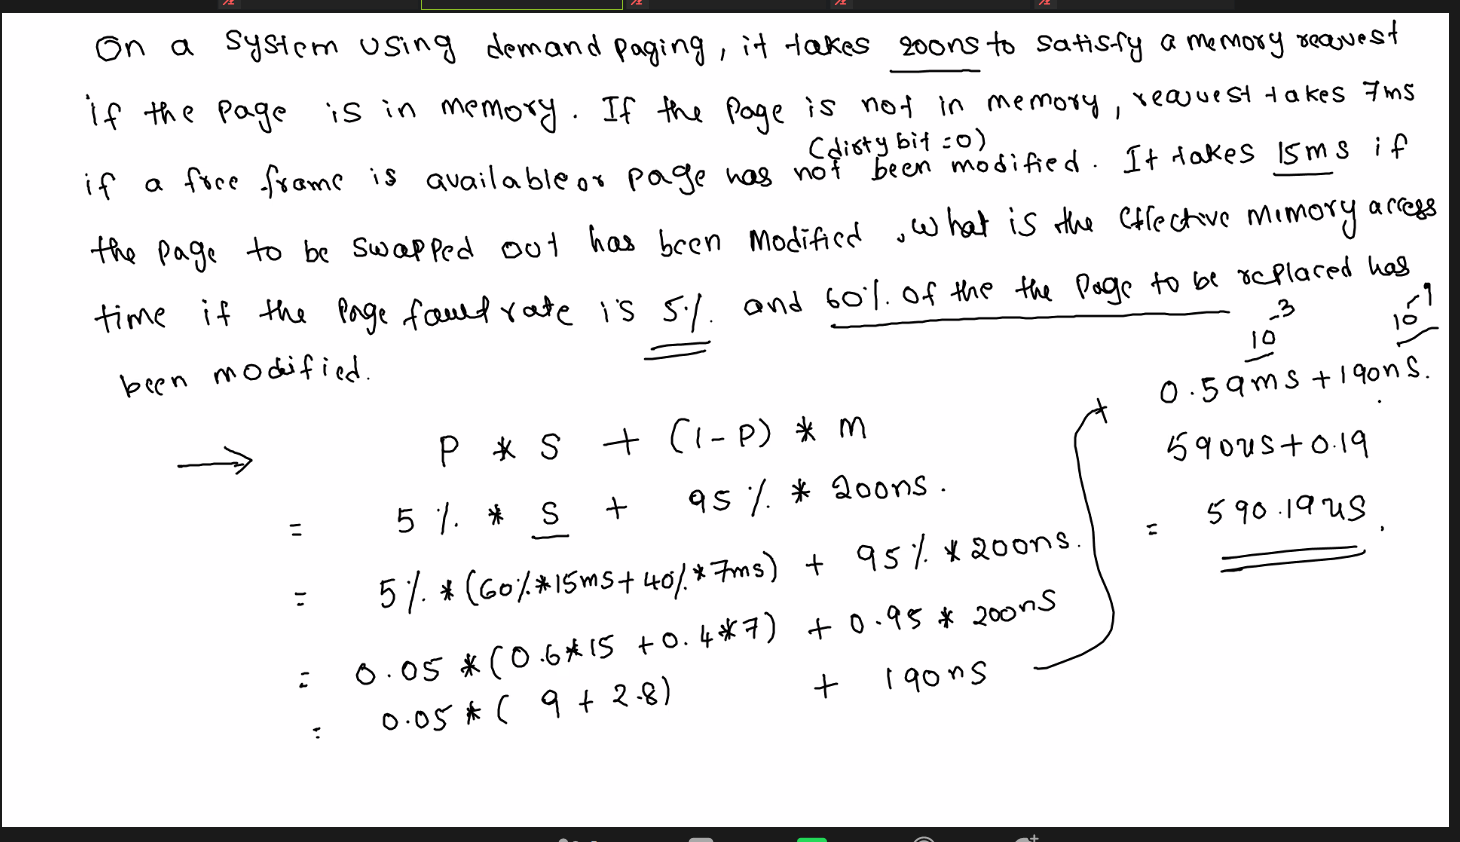 On a system using demand paging, it takes 200ns to satisfy a memory request
if the page is in memory. If the page is not in memory, request takes 7ms
(dirty bit = 0)
if a free frame is available or page has not been modified. It takes 15ms if
the page to be swapped out has been Modified, what is the effective memory access
time if the page fault rate is 5%. and 60%. of the the page to be replaced has
been modified.
P * S + (1-P) * m
= 5%. * S + 95%. * 200ns.
= 5%. * (60%*15ms + 40%*7ms) + 95% * 200ns.
= 0.05 * (0.6*15 + 0.4*7) + 0.95 * 200ns
= 0.05 * ( 9 + 2.8) + 190ns
10^-3 10^-9
0.59ms + 190ns.
590us + 0.19
= 590.19us.